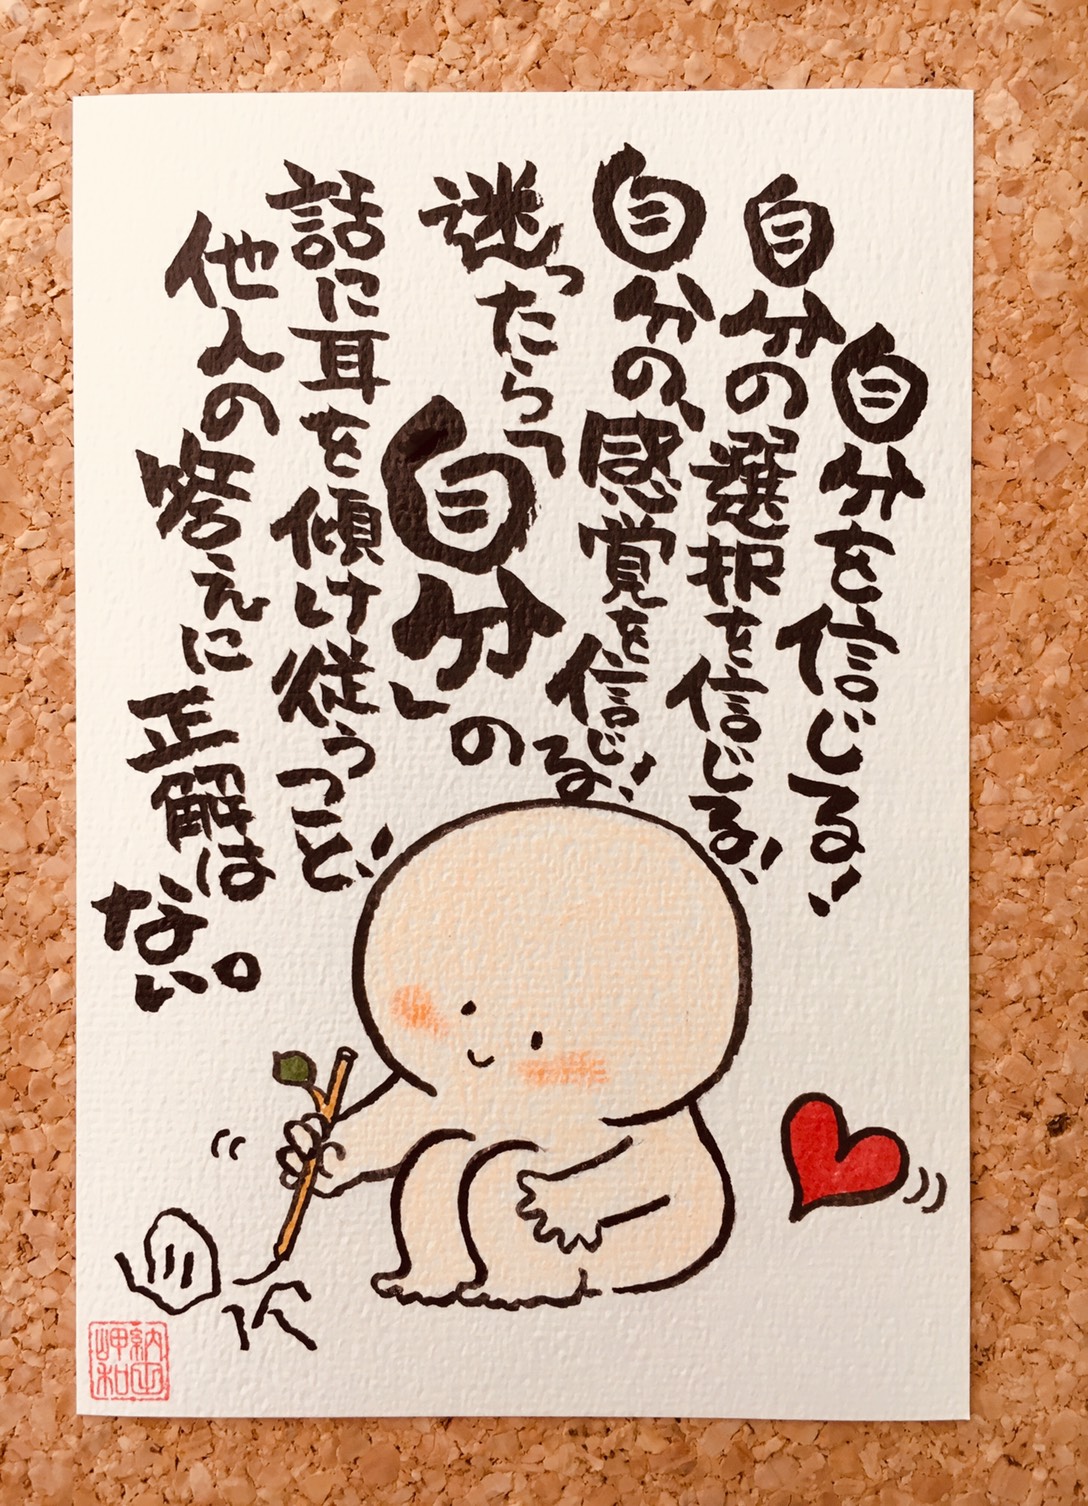 自分を信じる!
自分の選択を信じる!
自分の、感覚を信じる!
迷ったら「自分」の
話に耳を傾け従うこと!
他人の答えに正解はない。
自分